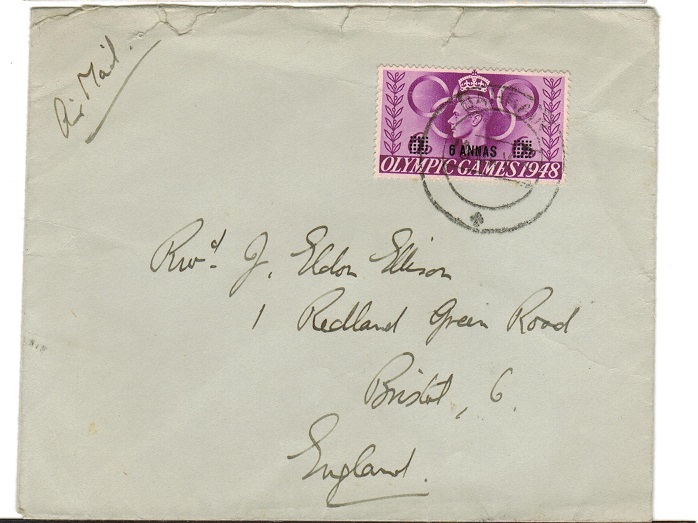 Air Mail.
6 ANNAS
OLYMPIC GAMES 1948
Revd. J. Eldon Ellison
1 Redland Green Road
Bristol, 6.
England.